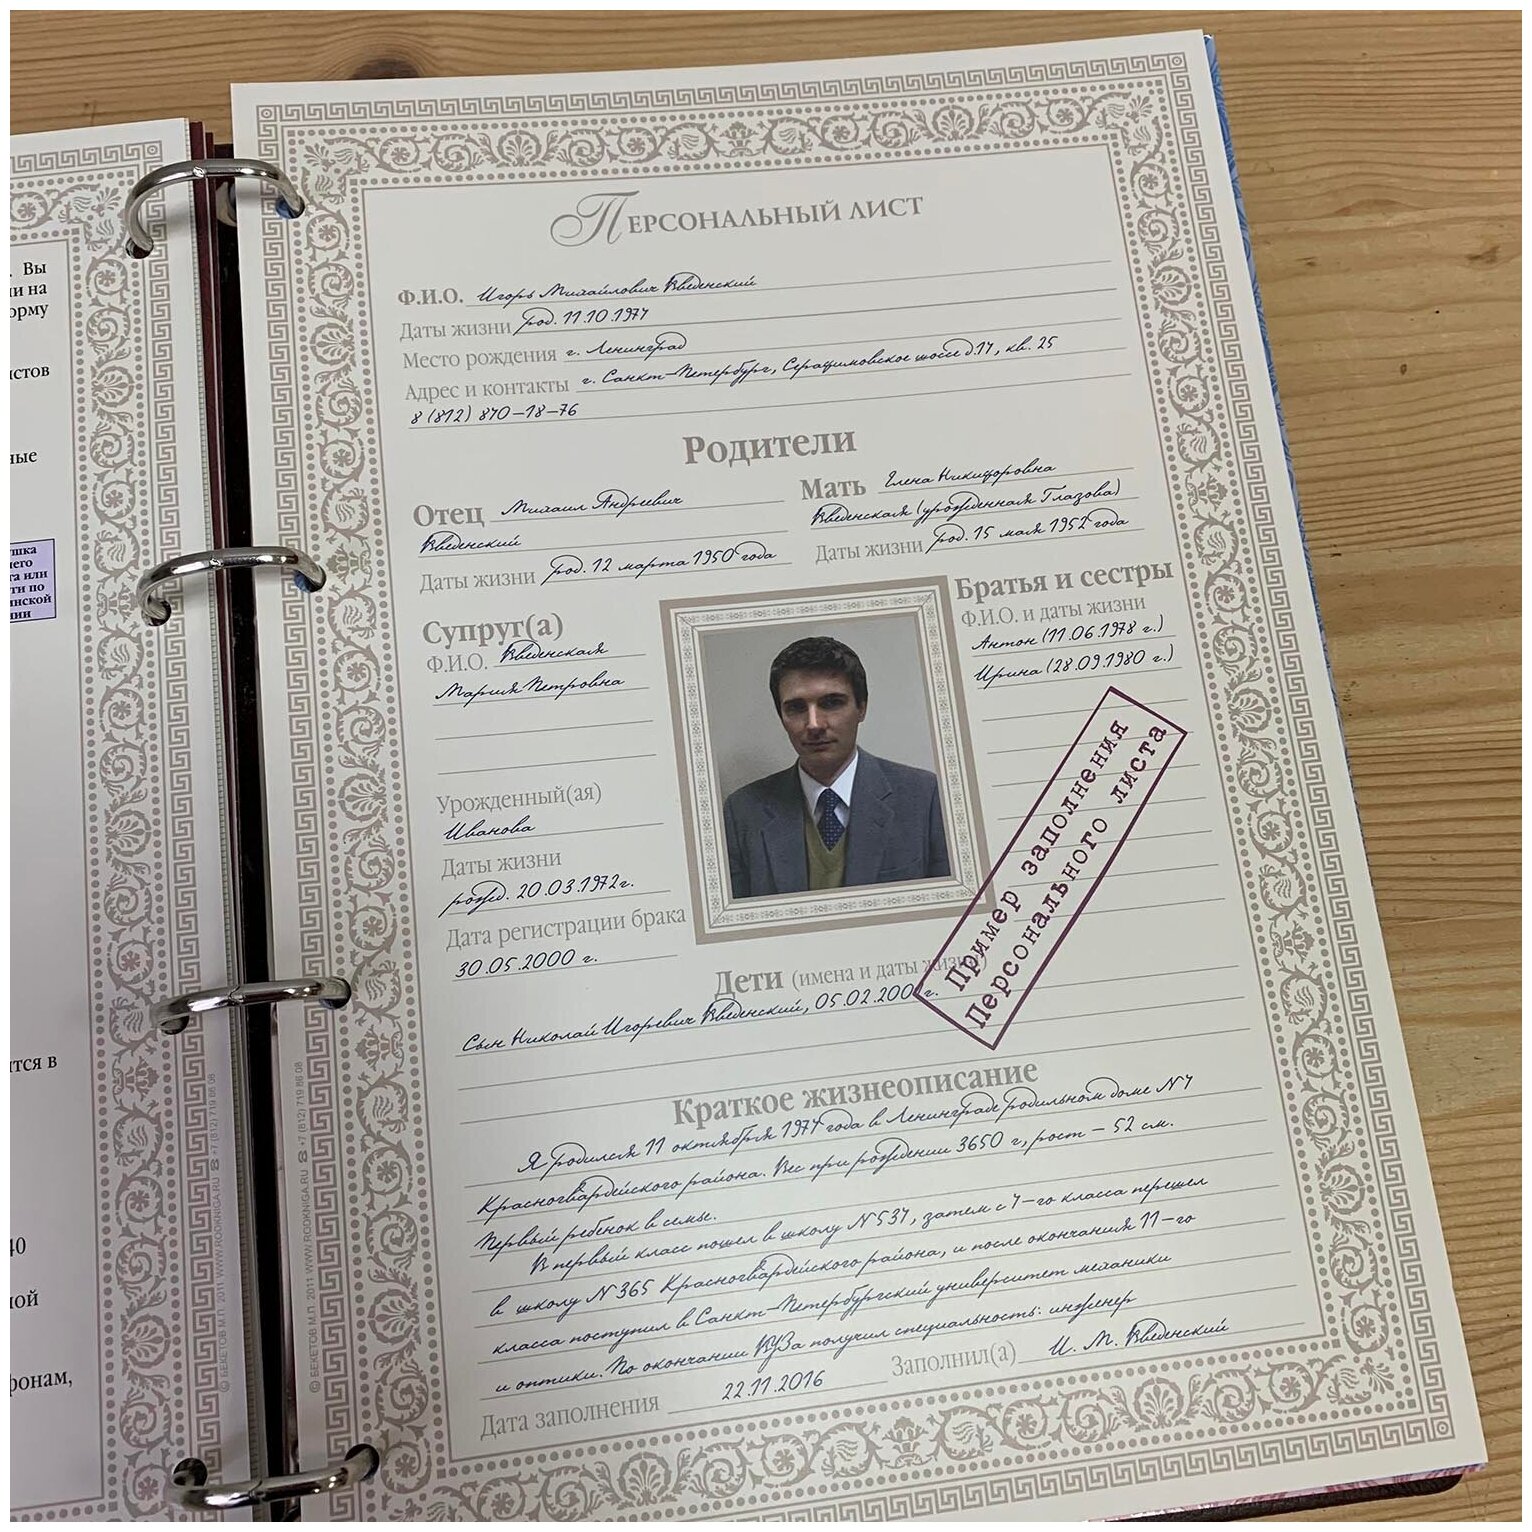 . Вы
ии на
орму
истов
ные
ушка
него
та или
сти по
инской
нии
ится в
40
ной
фонам,
© БЕКЕТОВ М.П. 2011 WWW.ROOKNIGA.RU ☎ +7 (812) 719 86 08
© БЕКЕТОВ М.П. 2011 WWW.ROOKNIGA.RU ☎ +7 (812) 719 86 08
Персональный лист
Ф.И.О. Игорь Михайлович Введенский
Даты жизни род. 11.10.1974
Место рождения г. Ленинград
Адрес и контакты г. Санкт-Петербург, Серафимовское шоссе д.14, кв. 25
8 (812) 840-18-76
Родители
Отец Михаил Андреевич
Введенский
Даты жизни род. 12 марта 1950 года
Мать Елена Никифоровна
Введенская (урожденная Глазова)
Даты жизни род. 15 мая 1952 года
Супруг(а)
Ф.И.О. Введенская
Мария Петровна
Урожденный(ая)
Иванова
Даты жизни
рожд. 20.03.1972г.
Дата регистрации брака
30.05.2000 г.
Братья и сестры
Ф.И.О. и даты жизни
Антон (11.06.1978 г.)
Ирина (28.09.1980 г.)
Пример заполнения
Персонального листа
Дети (имена и даты жизни)
Сын Николай Игоревич Введенский, г.
Краткое жизнеописание
Я родился 11 октября 1974 года в Ленинграде родильном доме №4
Красногвардейского района. Вес при рождении 3650 г, рост - 52 см.
Первый ребенок в семье.
В первый класс пошел в школу №534, затем с 4-го класса перешел
в школу №365 Красногвардейского района, и после окончания 11-го
класса поступил в Санкт-Петербургский университет механики
и оптики. По окончании ВУЗа получил специальность: инженер
Дата заполнения 22.11.2016 Заполнил(а) И. М. Введенский